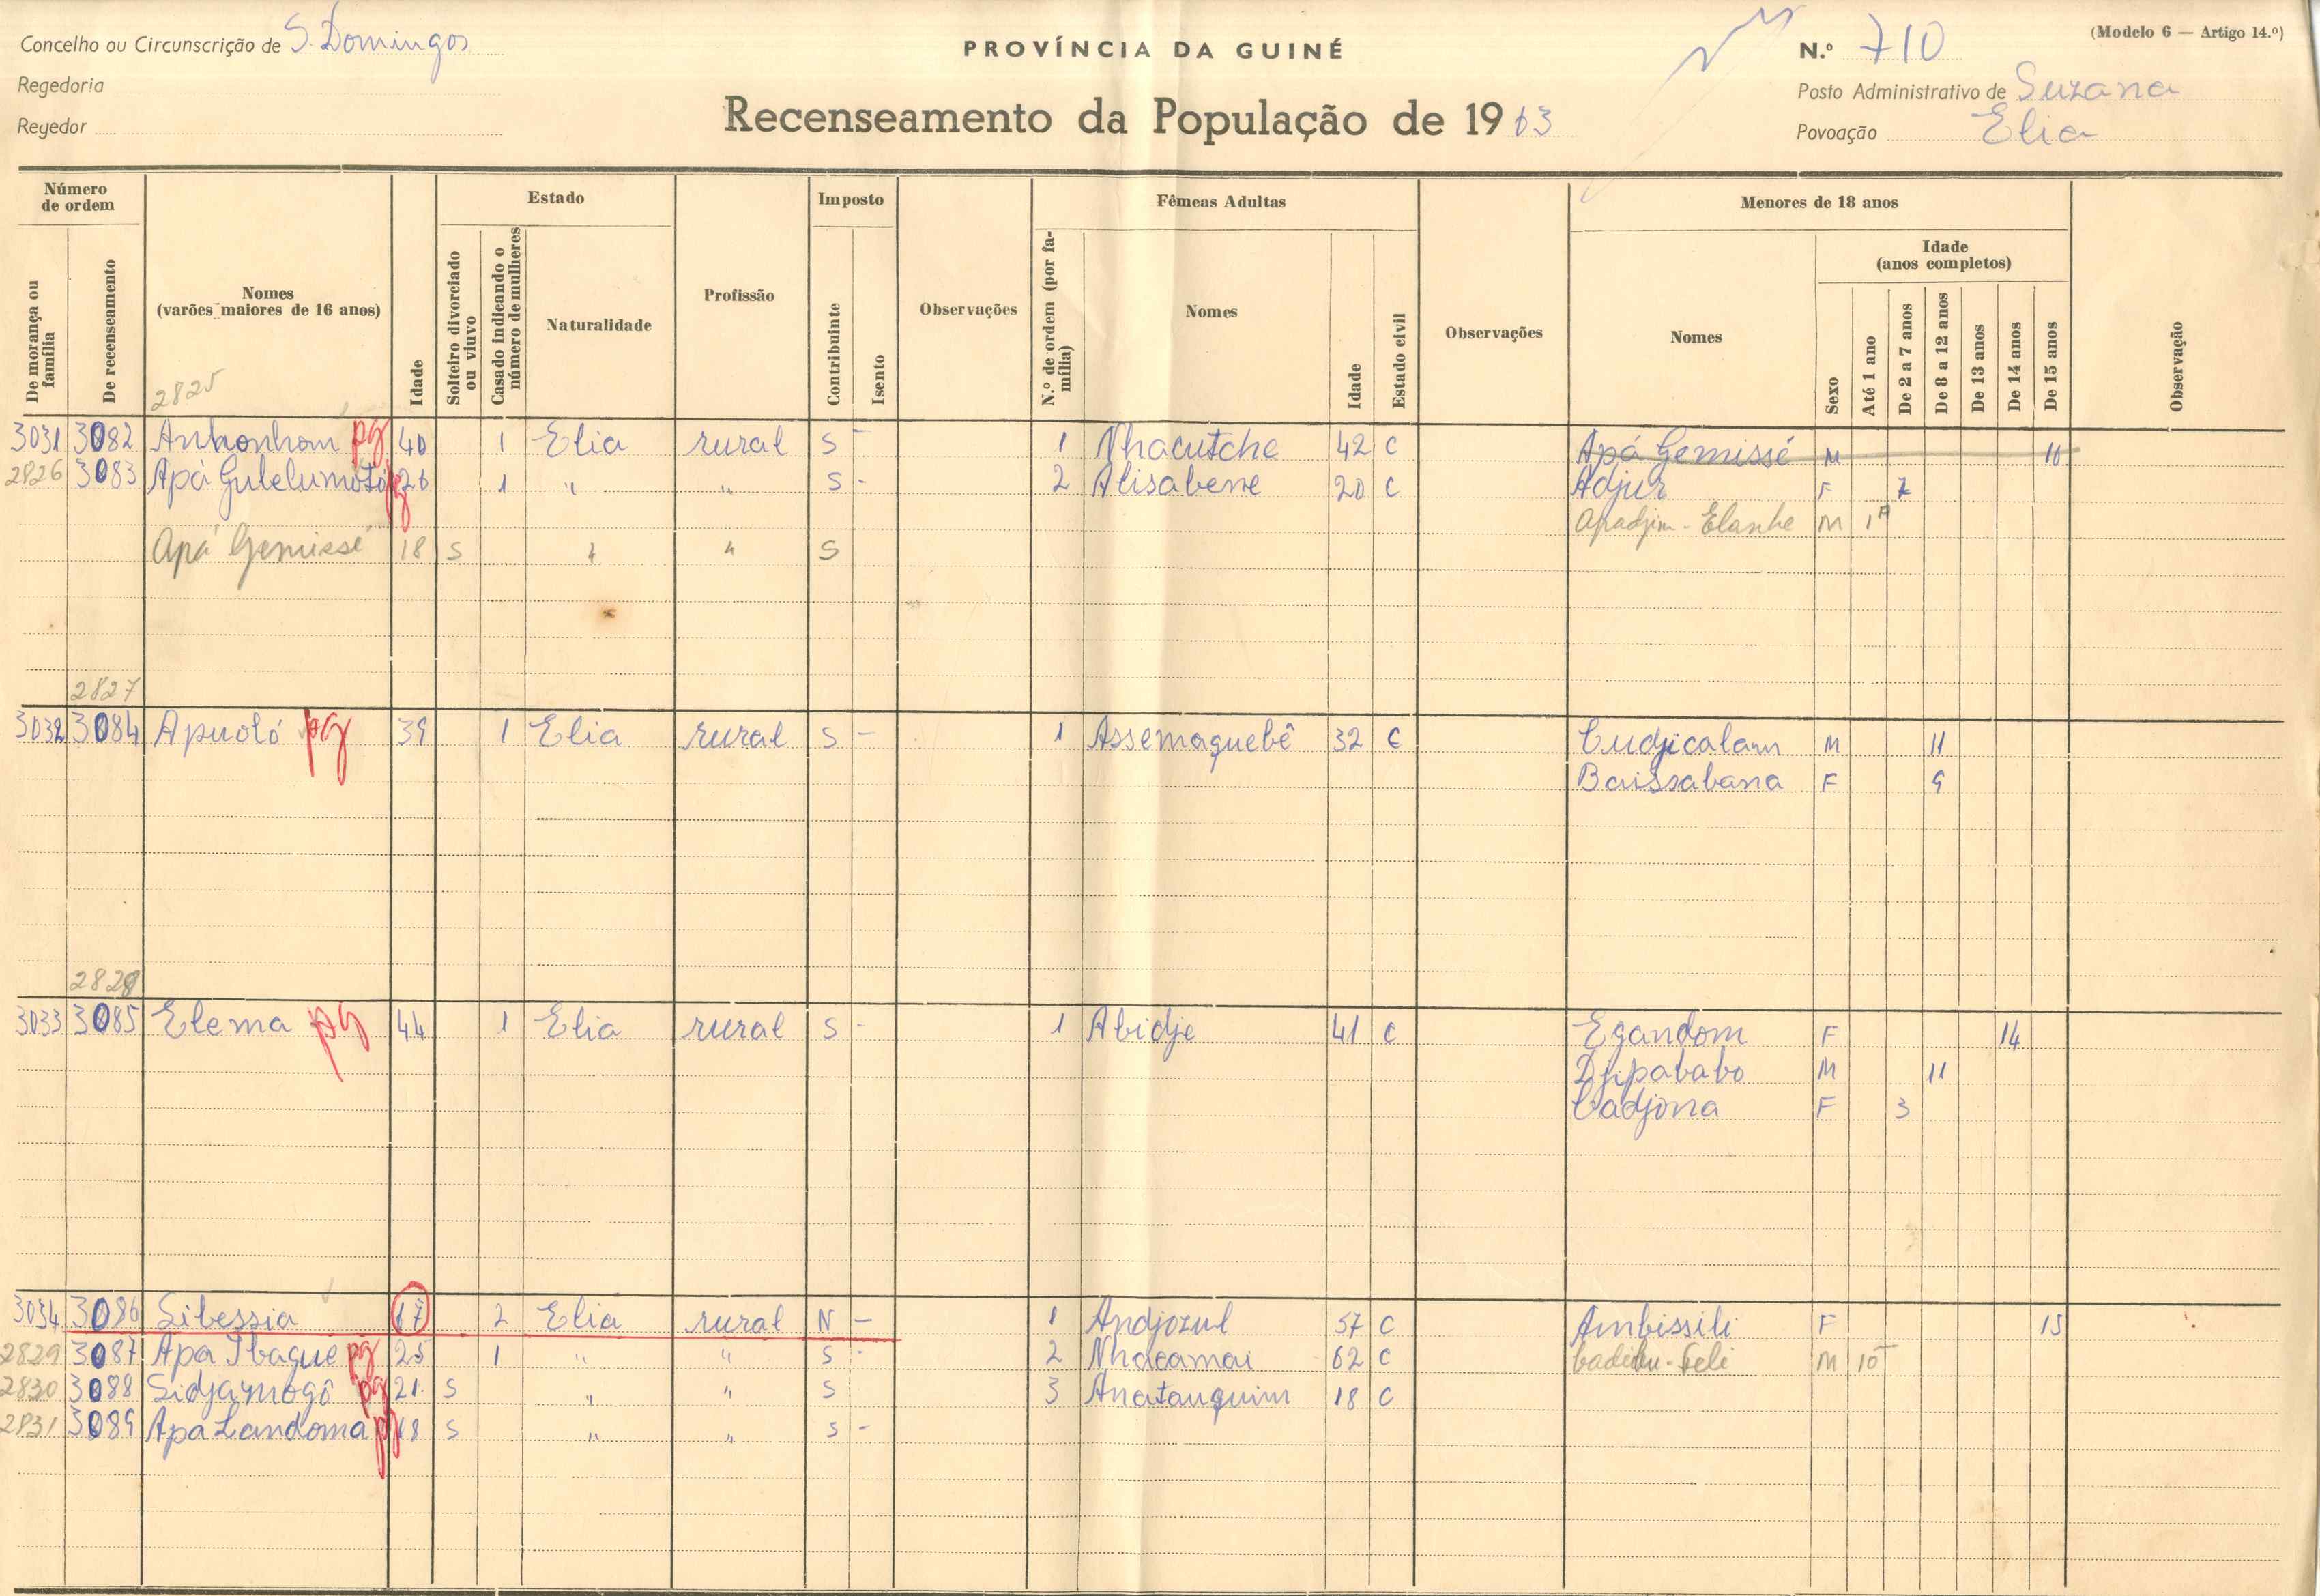 Concelho ou Circunscrição de S. Domingos
PROVÍNCIA DA GUINÉ
N.º 710
(Modelo 6 — Artigo 14.º)
Regedoria
Posto Administrativo de Suzana
Regedor
Recenseamento da População de 1963
Povoação Elia
Número de ordem
De morança ou família
De recenseamento
Nomes (varões maiores de 16 anos)
Idade
Estado
Solteiro divorciado ou viuvo
Casado indicando o número de mulheres
Naturalidade
Profissão
Imposto
Contribuinte
Isento
Observações
Fêmeas Adultas
N.º de ordem (por família)
Nomes
Idade
Estado civil
Observações
Menores de 18 anos
Nomes
Sexo
Idade (anos completos)
Até 1 ano
De 2 a 7 anos
De 8 a 12 anos
De 13 anos
De 14 anos
De 15 anos
Observação
2825
3031 3082 Anhonham pg 40 1 Elia rural S - 1 Nhacutche 42 C Apá Gemissé M 16
2826 3083 Apá Gulelumotó pg 26 1 " " S - 2 Alisabene 20 C Adjur F 7
Apadjim - Elanhe M 1A
Apá Gemissé 18 S " " S
2827
3032 3084 Apuoló pg 39 1 Elia rural S - 1 Assemaquebê 32 C Cudjicalam M 11
Baissabana F 9
2828
3033 3085 Elema pg 44 1 Elia rural S - 1 Abidje 41 C Egandom F 14
Djipababo M 11
Cadjona F 3
3034 3086 Sibessia 2 Elia rural N - 1 Andjozul 57 C Ambissili F 15
2829 3087 Apa Ibague pg 25 1 " " S - 2 Nhacamai 62 C M
2830 3088 Sidjamogô pg 21 S " " S 3 Anatauquim 18 C
2831 3089 Apa Landoma pg 18 S " " S -